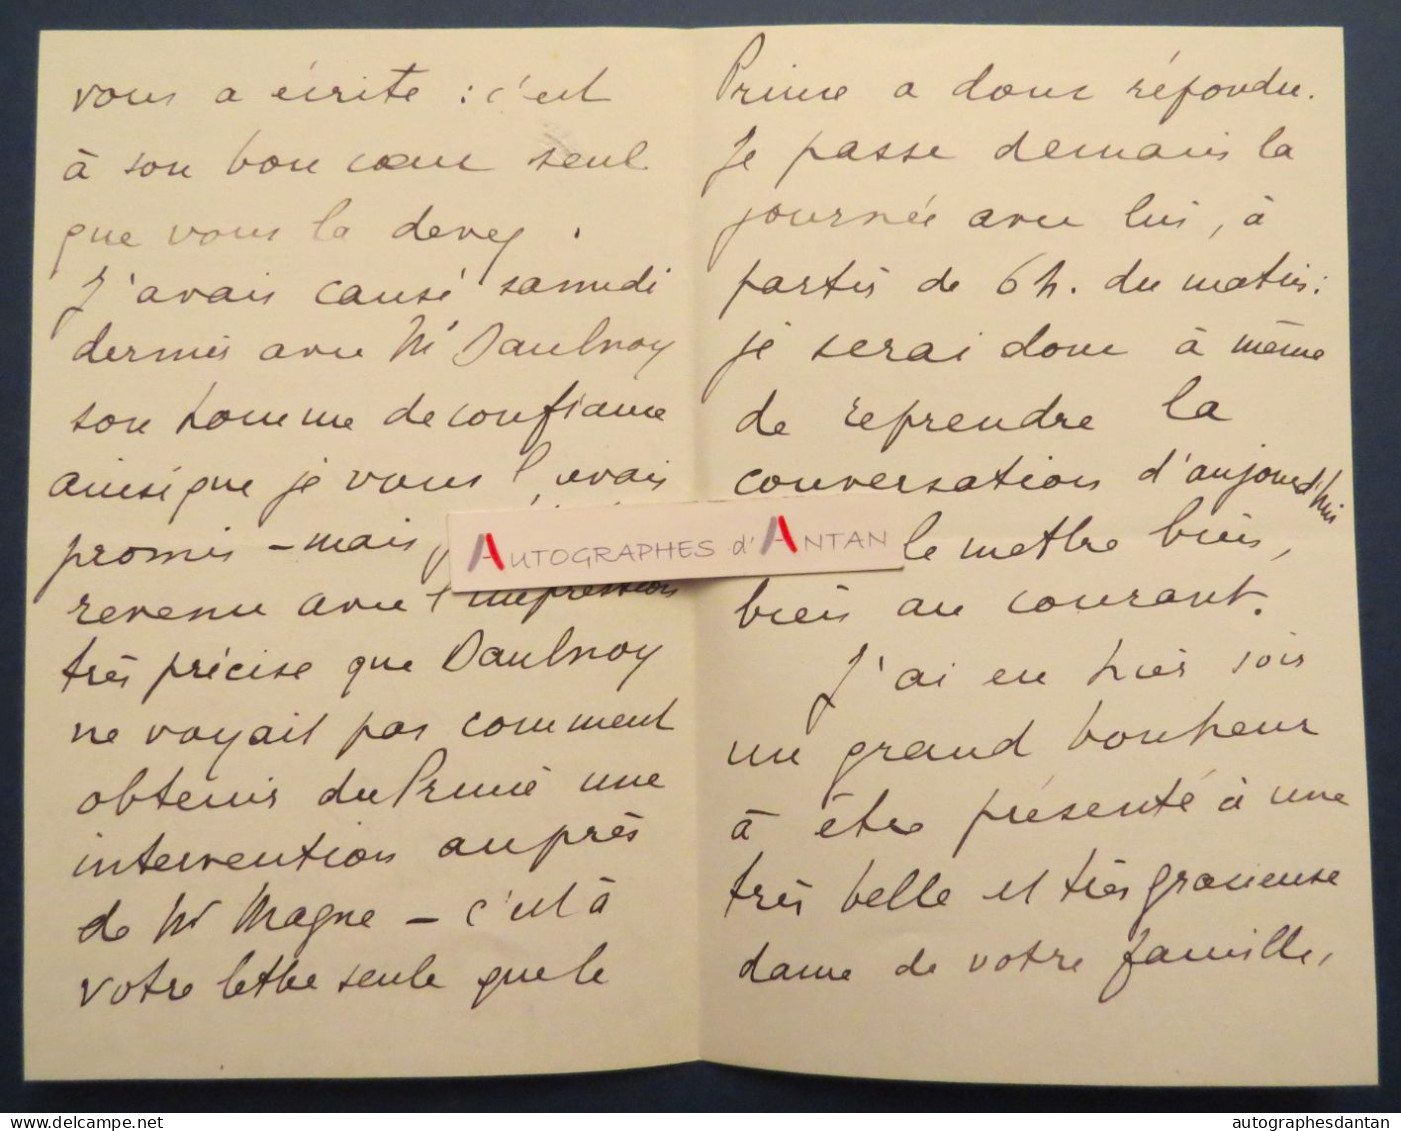 vous a écrite : c'est
à son bon cœur seul
que vous la devez.
J'avais causé samedi
dernier avec Mr Daulnoy
son homme de confiance
ainsi que je vous l'avais
promis – mais
revenu avec l'impression
très précise que Daulnoy
ne voyait pas comment
obtenir du Prince une
intervention auprès
de Mr Magne – c'est à
votre lettre seule que le
Prince a donc répondu.
Je passe demain la
journée avec lui, à
partir de 6 h. du matin :
je serai donc à même
de reprendre la
conversation d'aujourd'hui
le mettre bien,
bien au courant.
J'ai eu hier soir
un grand bonheur
à être présenté à une
très belle et très gracieuse
dame de votre famille,
AUTOGRAPHES d'ANTAN
delcampe.net
autographesdantan